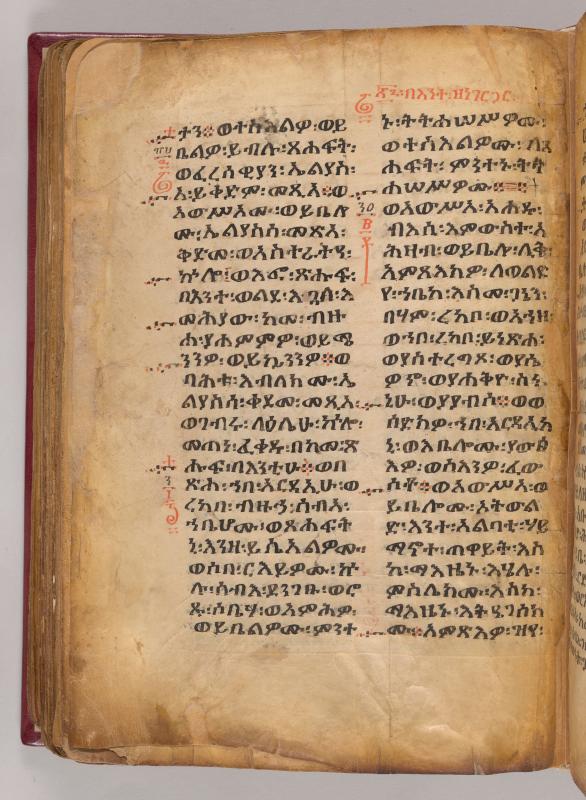 ትን፡ወተስእልዎ፡ወይ
ቤልዎ፡ይብሉ፡ጸሐፍት፡
ወፈረሳዊያን፡ኤልያስ፡
አ፡ይቀድም፡መጺአ፡ወ
አውሥአ፡ወይቤሎ
ሙ፡ኤልያስሰ፡መጽአ፡
ቅድመ፡ወአስተራትዓ፡
ኵሎ፡ወእፎ፡ጽሑፍ፡
በእንተ፡ወልደ፡እጓለ፡እ
መሕያው፡ከመ፡ብዙ
ኀ፡ያሐምምዎ፡ወይሜ
ንንዎ፡ወይኬንንዎ፡ወ
ባሕቱ፡እብለክሙ፡ኤ
ልያስሰ፡ቀደመ፡መጺአ፡
ወገብሩ፡ላዕሌሁ፡ኵሎ፡
መጠነ፡ፈቀዱ፡በከመ፡ጽ
ሑፍ፡በእንቲሁ፡ወበ
ጽሐ፡ኀበ፡አርዳኢሁ፡ወ
ረከበ፡ብዙኅ፡ሰብአ፡
ኀቤሆሙ፡ወጸሐፍት
ኒ፡እንዘ፡ይሴአልዎሙ
ወሶበ፡ርእይዎሙ፡ኵ
ሉ፡ሰብእ፡ደንገፁ፡ወሮ
ጹ፡ሶቤሃ፡ወአምሕዎ፡
ወይቤልዎሙ፡ምንተ
በእንተ፡ዘነገርጋር
ኑ፡ትትሐሠሥዎሙ፡
ወተስእልዎሙ፡ለጸ
ሐፍት፡ምንተኑ፡ትት
ሐሠሥዎሙ፡
ወአውሥአ፡አሐዱ፡
ብእሲ፡እምውስተ፡አ
ሕዛብ፡ወይቤሎ፡ሊቅ፡
አምጻእክዎ፡ለወልድ
የ፡ኀቤከ፡እስመ፡ጋኔን፡
በሃም፡ረከቦ፡ወእንዘ፡
ወኀበ፡ረከቦ፡ይነጽሖ፡
ወያስተረግጾ፡ወያሔ
ቅዮ፡ስነ
ኒሁ፡ወያየብሶ፡ወወ
ሰድክዎ፡ኀበ፡አርዳኢከ
ኒ፡ወእቤሎሙ፡ያውፅ
እዎ፡ወስእንዎ፡ፈው
ሶቶ፡ወአውሥአ፡ወ
ይቤሎሙ፡ኦትውል
ድ፡እንተ፡አልባቲ፡ሃይ
ማኖተ፡ጠዋይት፡እስ
ከ፡ማእዜኑ፡እሄሉ፡
ምስሌክሙ፡እስከ፡
ማእዜኑ፡እትዔገሰክ
ሙ፡አምጽእዎ፡ዝየ፡